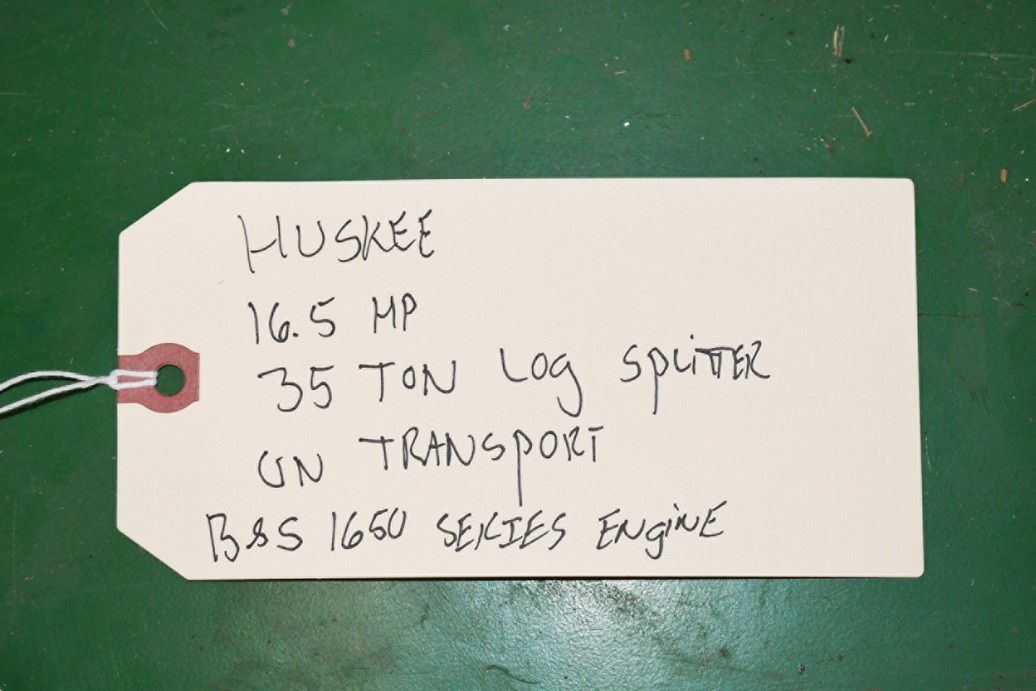 HUSKEE
16.5 HP
35 TON LOG SPLITTER
ON TRANSPORT
B&S 1650 SERIES ENGINE